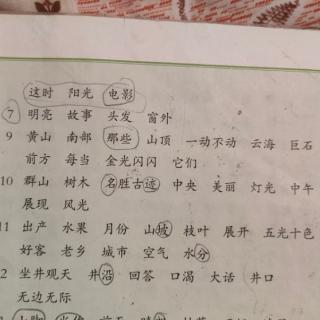 这时 阳光 电影
7 明亮 故事 头发 窗外
9 黄山 南部 那些 山顶 一动不动 云海 巨石
前方 每当 金光闪闪 它们
10 群山 树木 名胜古迹 中央 美丽 灯光 中午
展现 风光
11 出产 水果 月份 山坡 枝叶 展开 五光十色
好客 老乡 城市 空气 水分
2 坐井观天 井沿 回答 口渴 大话 井口
无边无际